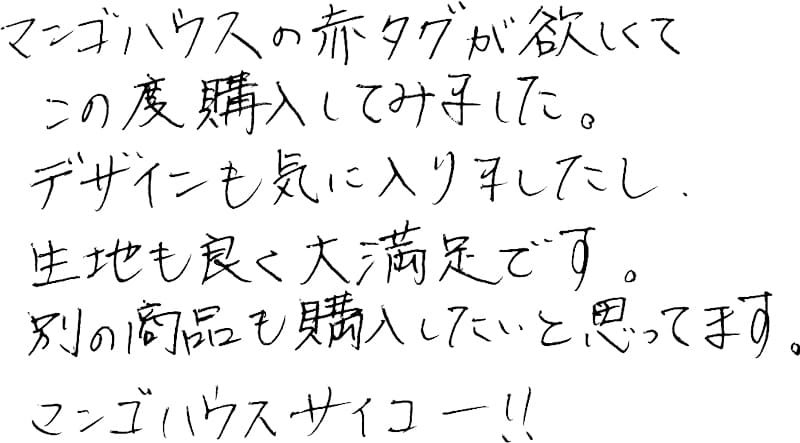 マンゴハウスの赤タグが欲しくて
この度購入してみました。
デザインも気に入りましたし、
生地も良く大満足です。
別の商品も購入したいと思ってます。
マンゴハウスサイコー!!